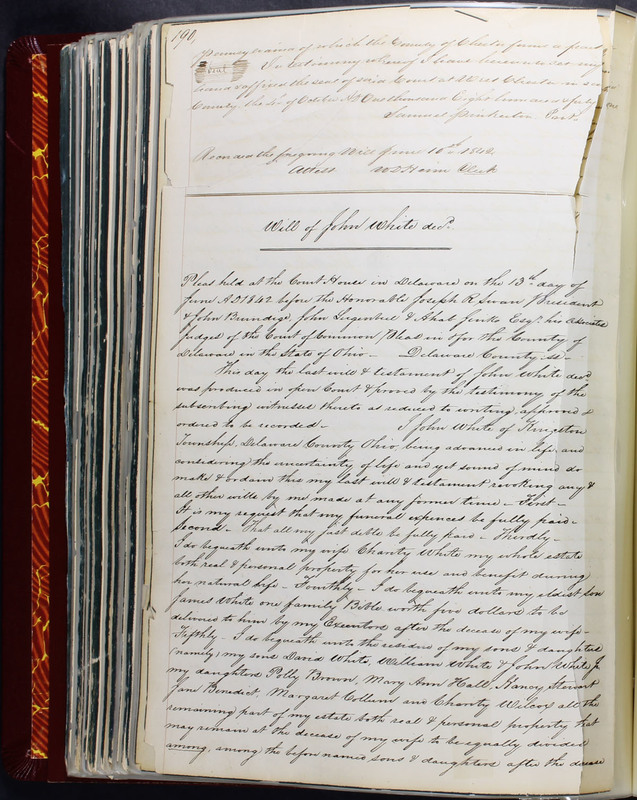 190,
Pennsylvania of which the County of Chester forms a part
In testimony whereof I have hereunto set my
Seal
hand & affixed the seal of said Court at West Chester in said
County the 4th of October AD One thousand Eight hundred & forty
Samuel Pinkerton Proty
Recorded the foregoing Will June 10th 1842.
Attest W D Heim Clerk
Will of John White decd.
Pleas held at the Court House in Delaware on the 13th day of
June AD 1842 before the Honorable Joseph R Swan President
& John Brundige, John & Ahab Jinks Esqrs. his Associates
Judges of the Court of Common Pleas in & for the County of
Delaware in the State of Ohio – Delaware County ss –
This day the last will & testament of John White decd
was produced in open Court & proved by the testimony of the
subscribing witnesses thereto as reduced to writing, approved &
ordered to be recorded – I John White of Kingston
Township, Delaware County Ohio, being advanced in life, and
considering the uncertainty of life and yet sound of mind do
make & ordain this my last will & testament revoking any &
all other wills by me made at any former time – First –
It is my request that my funeral expences be fully paid –
Second – That all my just debts be fully paid – Thirdly –
I do bequeath unto my wife Charity White my whole estate
both real & personal property for her use and benefit during
her natural life – Fourthly – I do bequeath unto my eldest son
James White one family Bible worth five dollars to be
delivered to him by my Executors after the decease of my wife –
Fifthly – I do bequeath unto the residue of my sons & daughters
(namely) my sons David White, William White & John White Jr
my daughters Polly Brown, Mary Ann Hall, Nancy Stewart
Jane Benedict, Margaret Collum and Charity Wilcox all the
remaining part of my estate both real & personal property that
may remain at the decease of my wife to be equally divided
among, among the before named sons & daughters after the decease